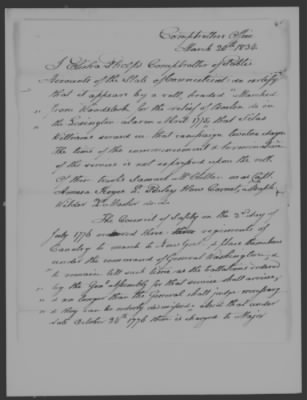 Comptrollers Office
March 26th 1834.
I Elisha Phelps Comptroller of Public
Accounts of the State of Connecticut, do certify
that it appears by a roll, headed "Marched
from Woodstock for the relief of Boston in the
Lexington alarm April 1775, that Silas
Williams served in that campaign twelve days
The time of the commencement & termination
of the service is not expressed upon the roll.
of their ranks Samuel McClellan was Capt.
&
The Council of Safety on the 2d day of
July 1776 ordered three regiments of
Cavalry to march to New York & place themselves
under the command of General Washington, &
" to remain till such time as the battalions ordered
" by the Genl Assembly for that service shall arrive,
" & no longer than the General shall judge necessary
" & they can be safely dismissed" And that under
date October 24th 1776 there is charged to Major